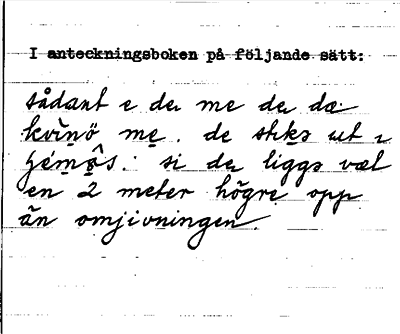 I anteckningsboken på följande sätt:
sådant e de me de dæ
kvinö me. de stks ut i
si de liggə væl
en 2 meter högre opp
än omjivningen.